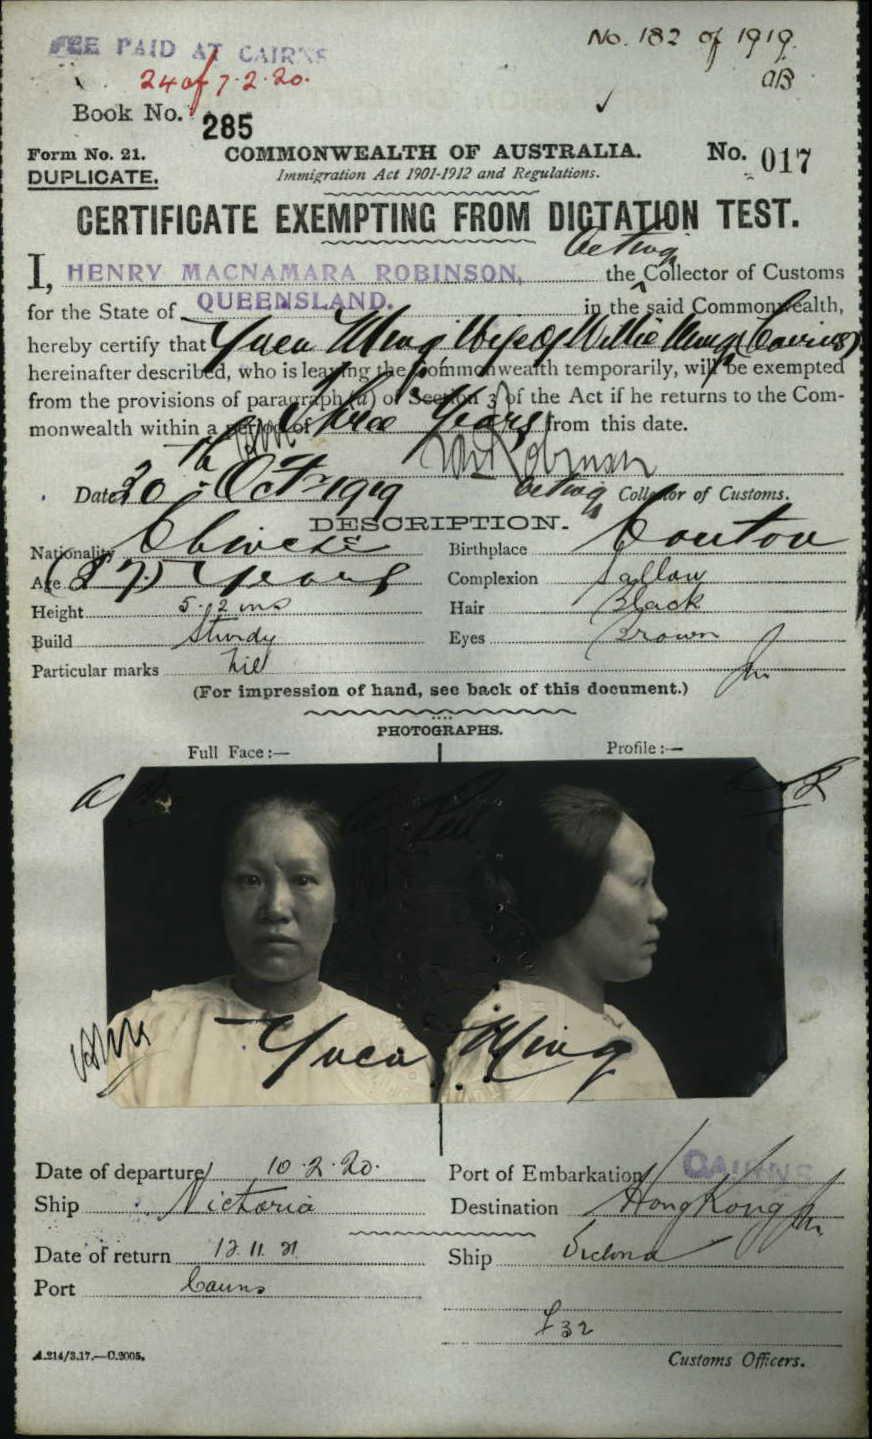 FEE PAID AT CAIRNS
24 of 7.2.20.
No. 182 of 1919.
Book No. 285
Form No. 21.
DUPLICATE.
COMMONWEALTH OF AUSTRALIA.
Immigration Act 1901-1912 and Regulations.
No. 017
CERTIFICATE EXEMPTING FROM DICTATION TEST.
Acting
I, HENRY MACNAMARA ROBINSON, the Collector of Customs
for the State of QUEENSLAND. in the said Commonwealth,
hereby certify that Yuea Ming Wife of Willie Ming (Cairns)
hereinafter described, who is leaving the Commonwealth temporarily, will be exempted
from the provisions of paragraph (a) of Section 3 of the Act if he returns to the Com-
monwealth within a period of Three Years from this date.
Date 20th Oct 1919 Acting Collector of Customs.
DESCRIPTION.
Nationality Chinese Birthplace Canton
Age Years Complexion Sallow
Height 5. 2 ins Hair Black
Build Sturdy Eyes Brown
Particular marks Nil
(For impression of hand, see back of this document.)
PHOTOGRAPHS.
Full Face :— Profile :—
Yuea Ming
Date of departure 10.2.20. Port of Embarkation CAIRNS
Ship Victoria Destination Hong Kong
Date of return 12.11.21 Ship Victoria
Port Cairns
£32
A.214/3.17.—C.2005. Customs Officers.